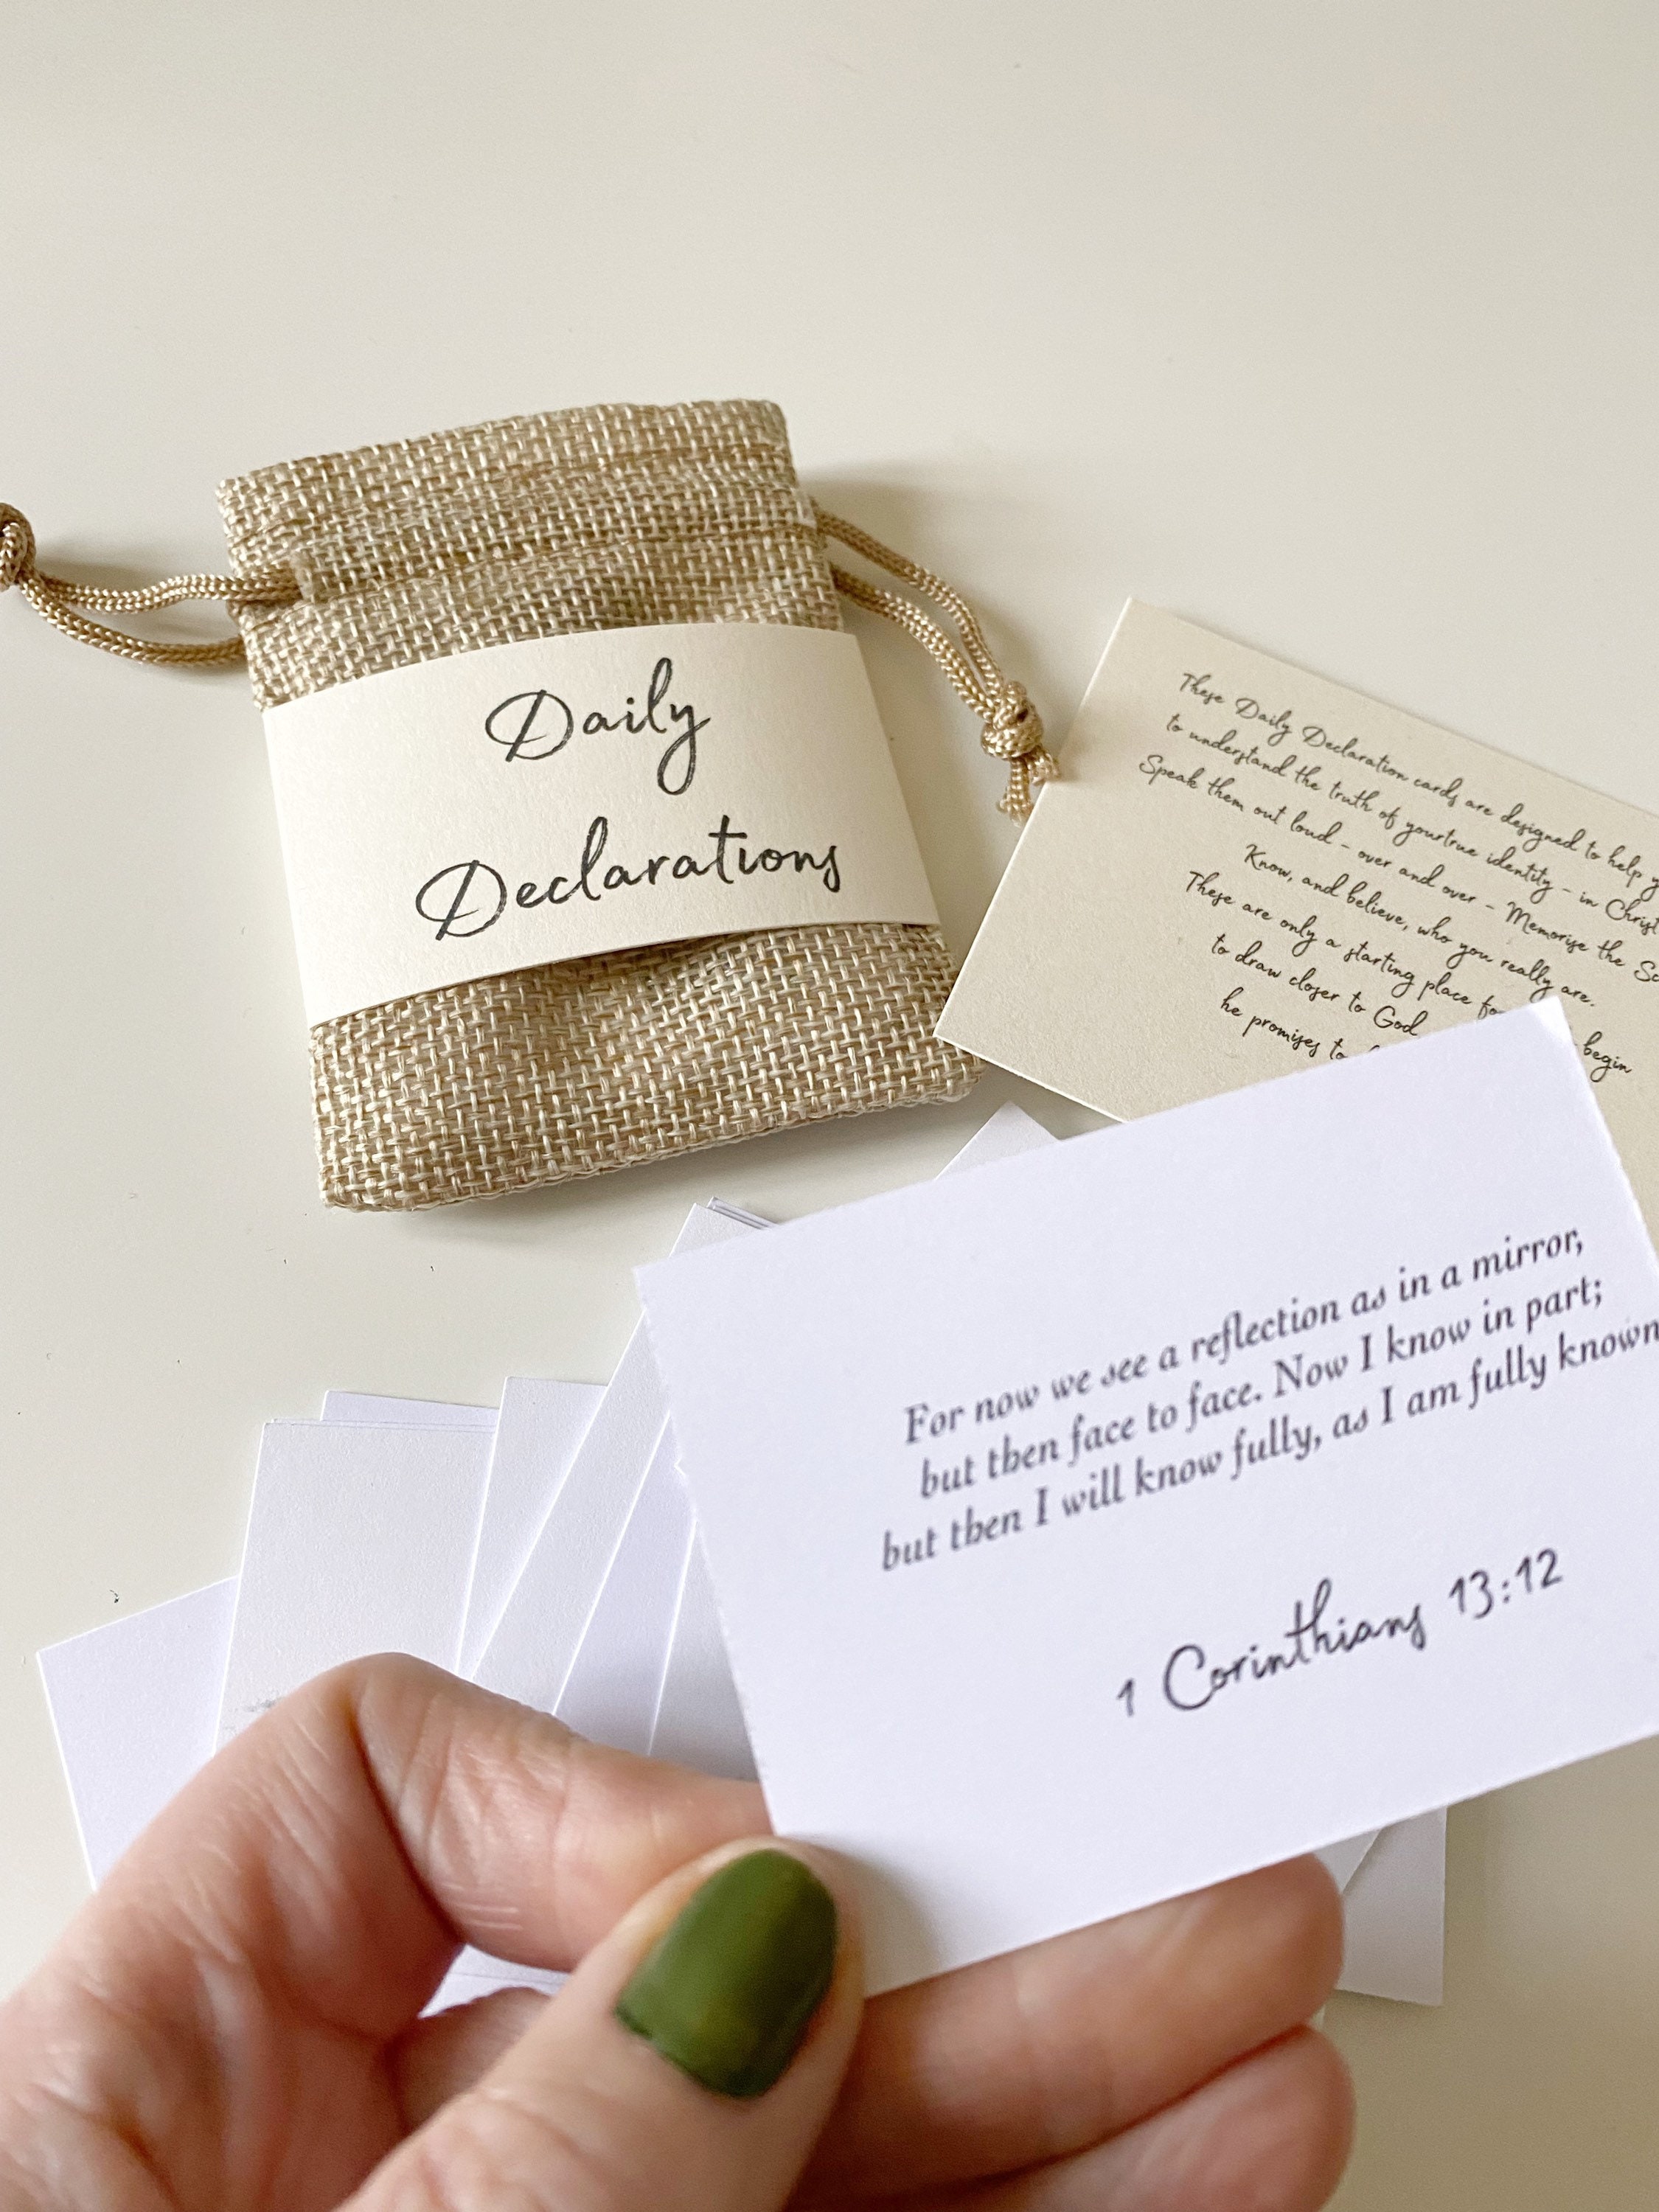 Daily
Declarations
These Daily Declaration cards are designed to help
to understand the truth of yourtrue identity - in Christ
Speak them out loud - over and over - Memorise the
Know, and believe, who you really are.
These are only a starting place
begin
to draw closer to God
he promises to
For now we see a reflection as in a mirror,
but then face to face. Now I know in part;
but then I will know fully, as I am fully known
1 Corinthians 13:12